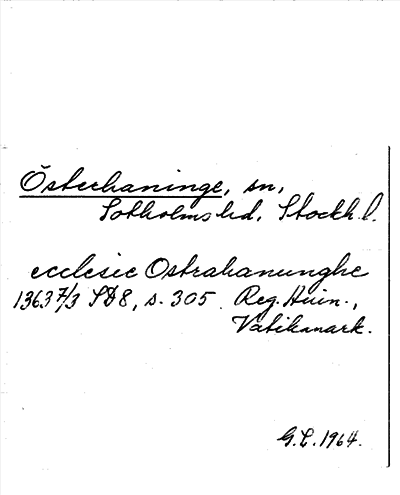 Österhaninge, sn,
Sotholms hd, Stockh. l.
ecclesie Ostrahanunghe
1363 7/3 SD8, s. 305. Reg. Huin.,
Vatikanark.
G.L. 1964.